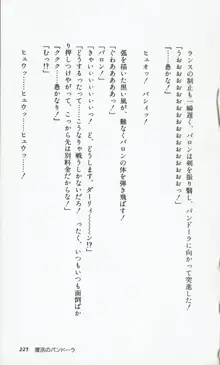 ランスの制止も一瞬遅く、バロンは剣を振り翳し、パンドーラに向かって突進した！
「うおおおおおおおおおおっ！」
「……愚かな！」
ヒュオッ！　バシィッ！
弧を描いた黒い風が、難なくバロンの体を弾き飛ばす！
「ぐああああああっ！」
「バロン！」
「きゃいぃいぃいぃっ！　ど、どうします、ダーリィーン!?」
「どうするったって……こうなりゃ戦うしかないだろ！　ったく、いつもいつも面倒ばかり押しつけやがって、こっから先は別料金だからな！」
「ククク……愚かなり！」
「むっ!?」
ヒュウッ……ヒュウッ……！
225　魔活のパンドーラ